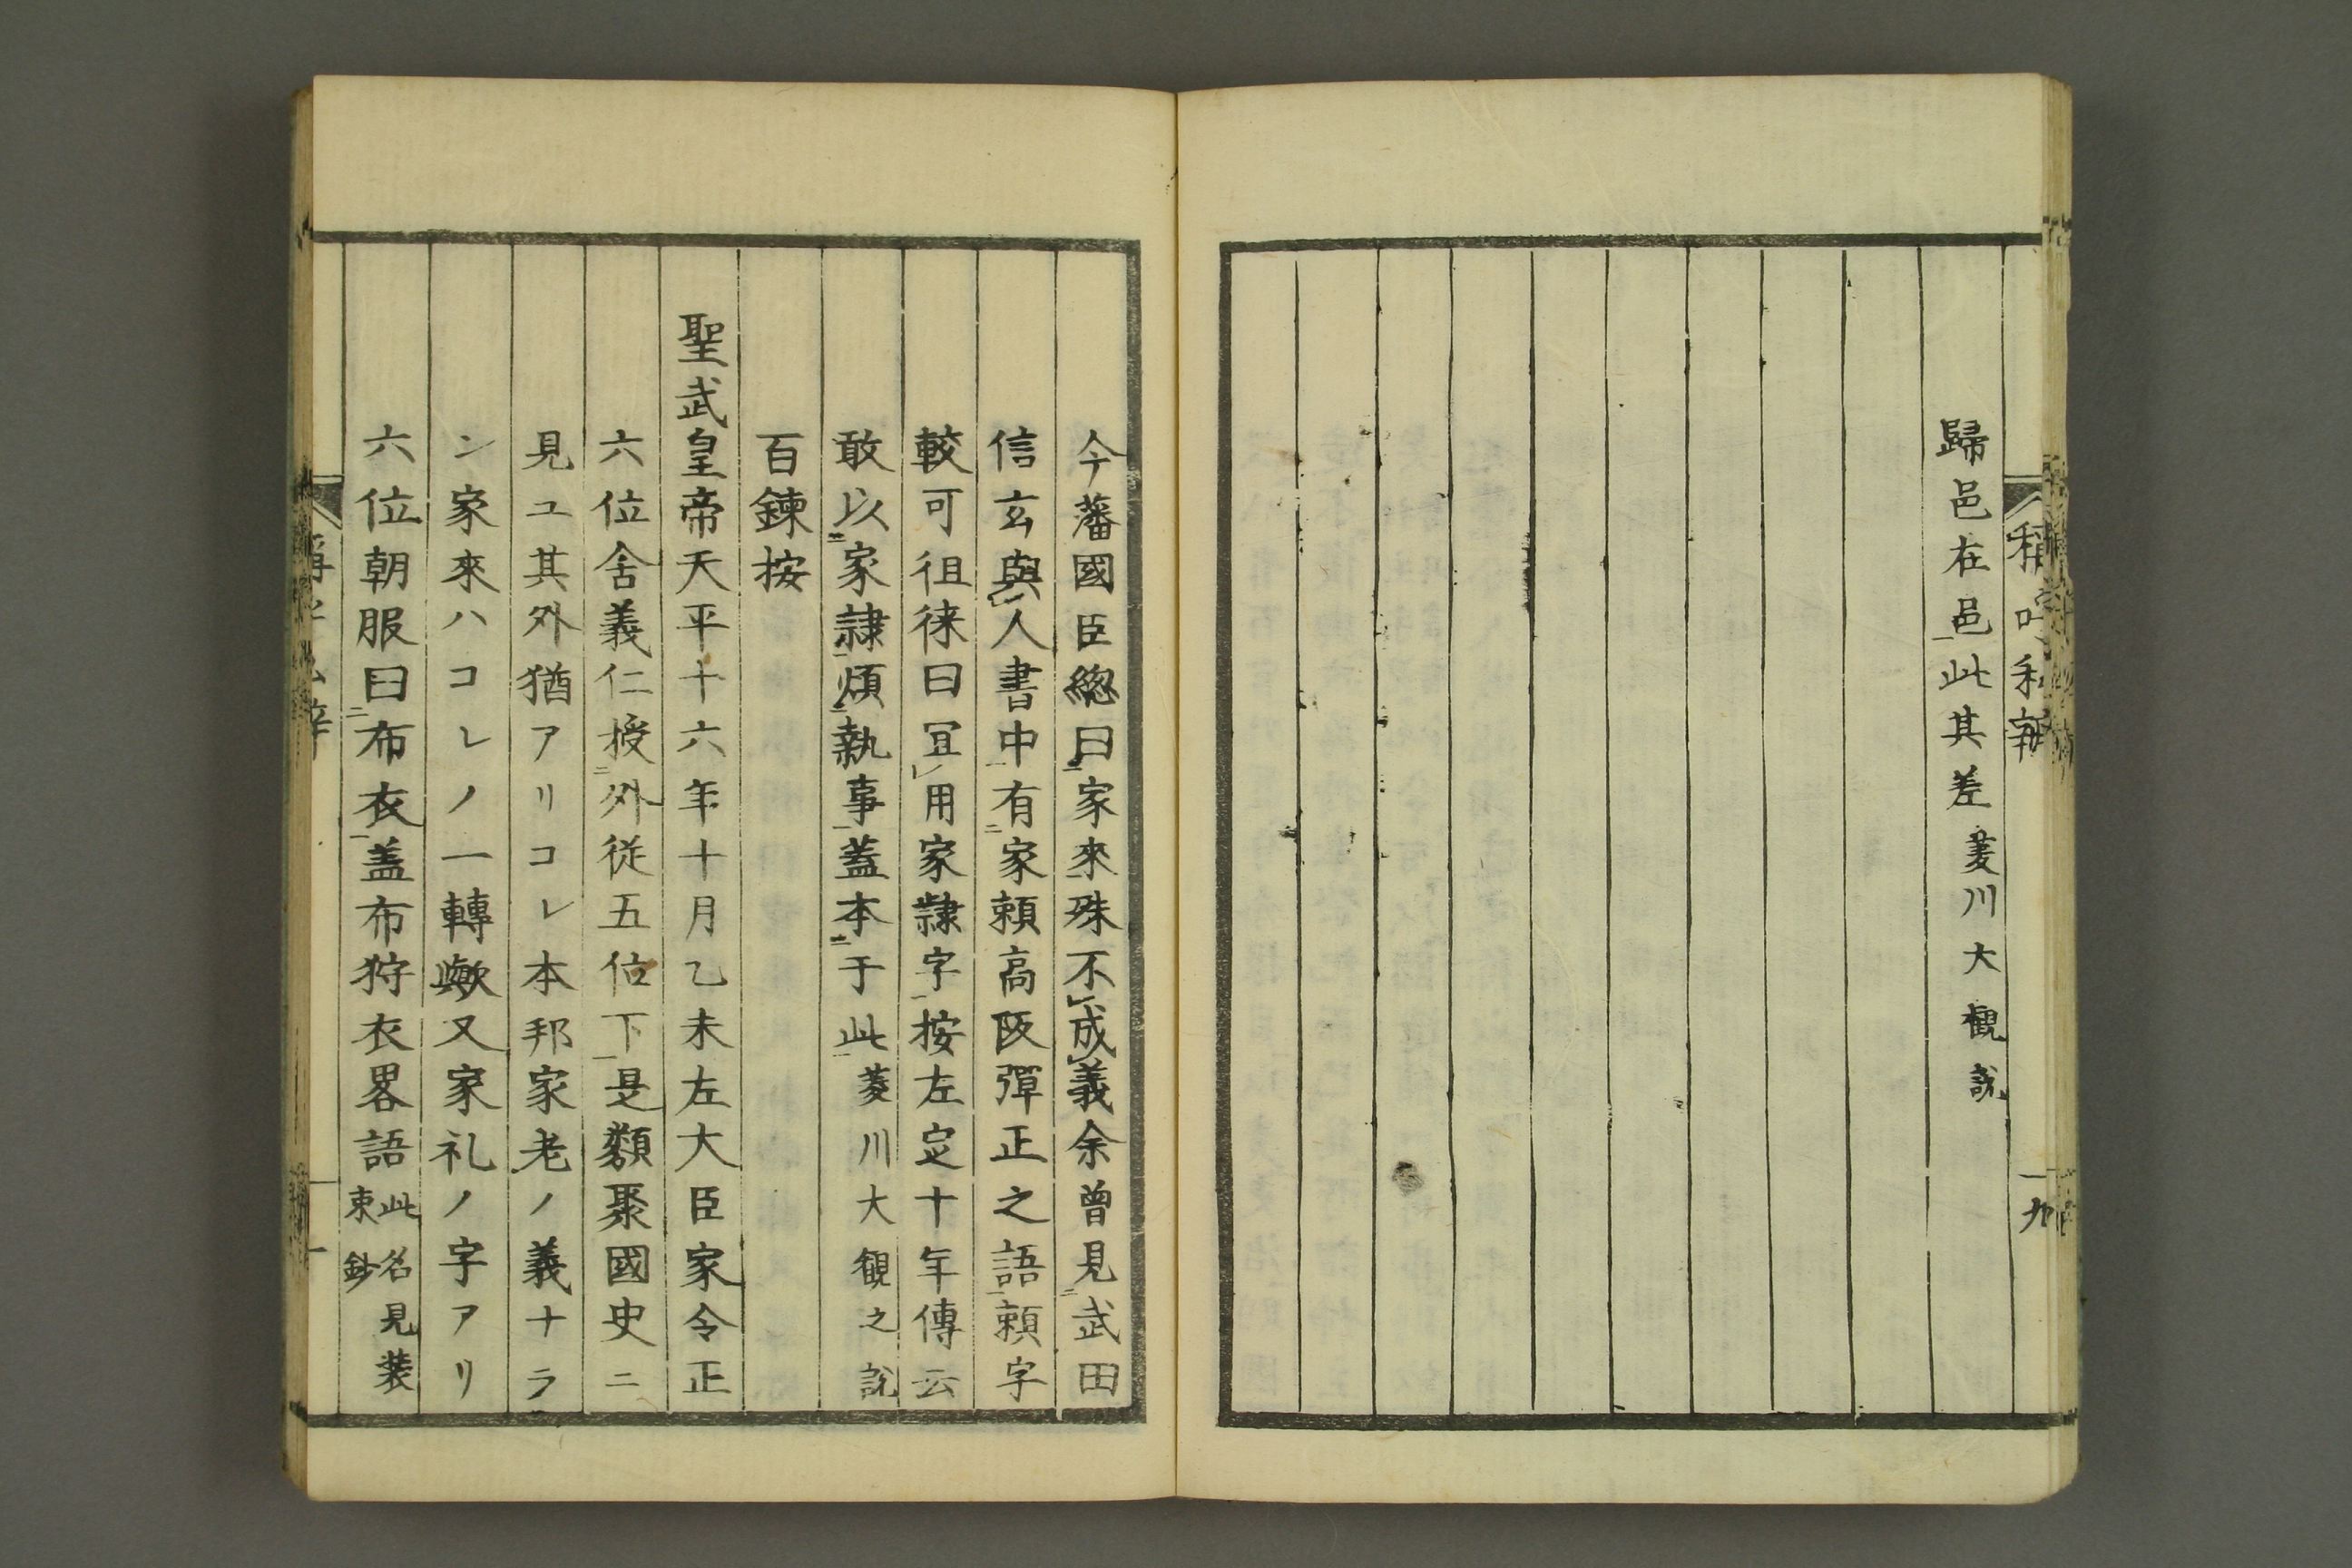 稱呼私辨
十九
歸邑在邑此其差菱川大觀說
今藩國臣總曰家來殊不成義余曾見武田
信玄與人書中有家頼高阪彈正之語頼字
較可徂徠曰冝用家隷字按左定十年傳云
敢以家隷煩執事蓋本于此菱川大觀之說
百鍊按
聖武皇帝天平十六年十月乙未左大臣家令正
六位舍義仁授外従五位下是類聚國史ニ
見ユ其外猶アリコレ本邦家老ノ義ナラ
ン家來ハコレノ一轉歟又家礼ノ字アリ
六位朝服曰布衣盖布狩衣畧語此名見装
束鈔